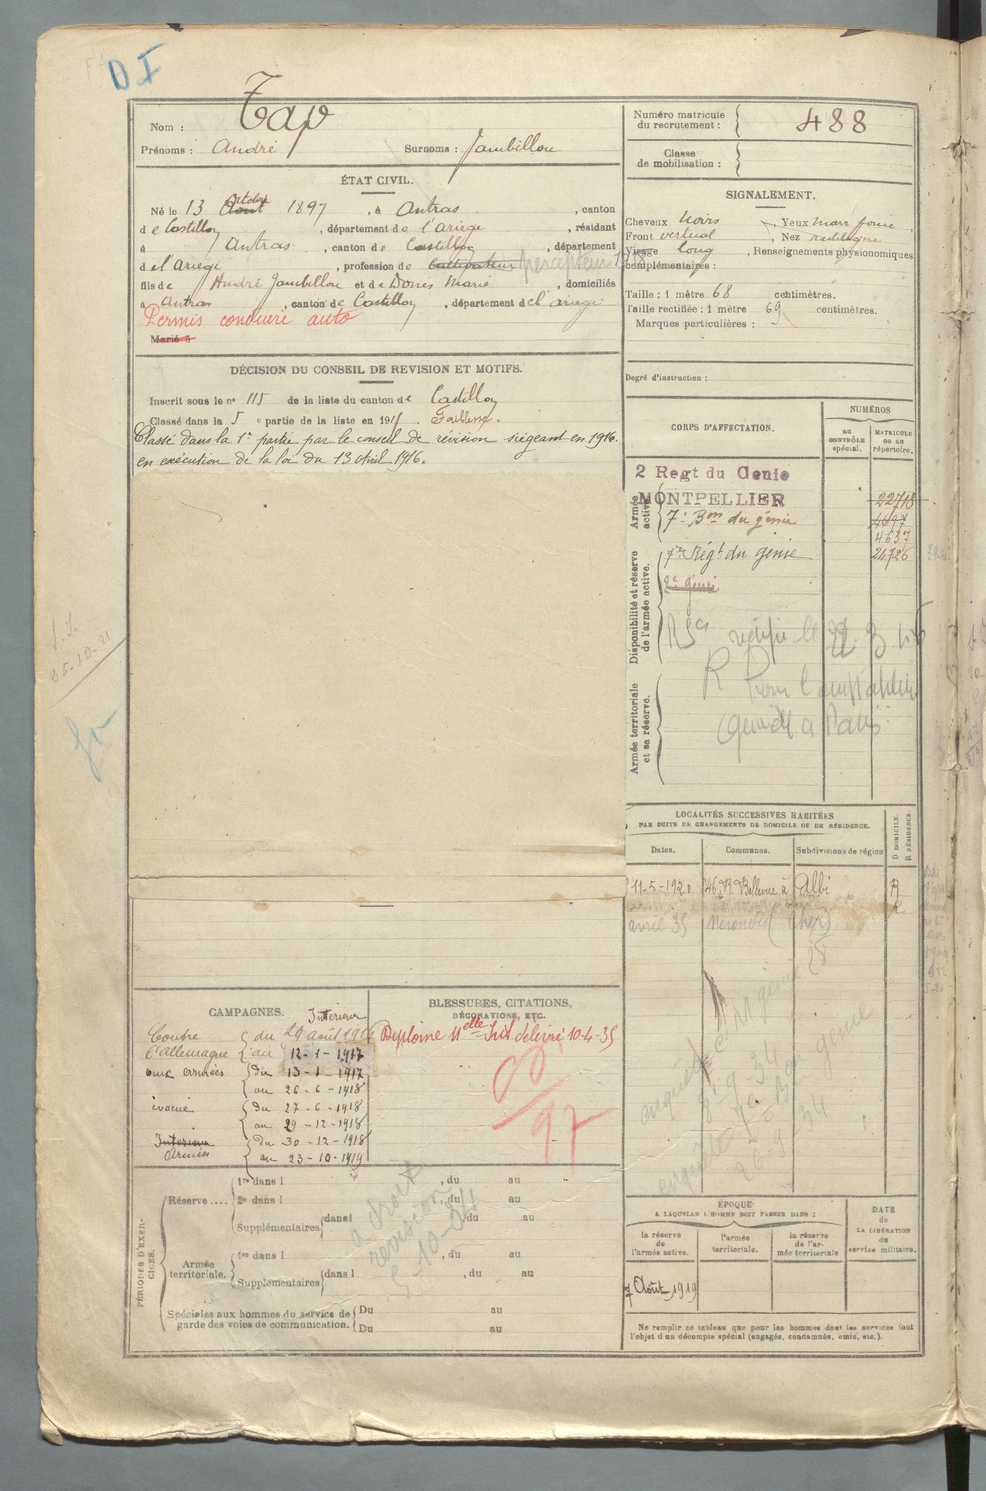 D I
Nom : Tap
Prénoms : André Surnoms : Jambillou
ÉTAT CIVIL.
Né le 13 Août Octobre 1897, à Antras, canton
de Castillon, département de l'Ariège, résidant
à Antras, canton de Castillon, département
de l'Ariège, profession de Cultivateur percepteur
fils de André Jambillou et de Dours Marie, domiciliés
à Antras, canton de Castillon, département de l'Ariège
Permis conduire auto
Marié à
DÉCISION DU CONSEIL DE REVISION ET MOTIFS.
Inscrit sous le n° 115 de la liste du canton de Castillon
Classé dans la 5e partie de la liste en 191 Faiblesse.
Classé dans la 1re partie par le conseil de révision siégeant en 1916.
en exécution de la loi du 13 Avril 1916.
CAMPAGNES.
Intérieur
Contre du 29 août 1916
l'allemagne au 12-1-1917
aux armées du 13-1-1917
au 26-6-1918
évacué du 27-6-1918
au 29-12-1918
Intérieur du 30-12-1918
Armées au 23-10-1919
BLESSURES, CITATIONS,
DÉCORATIONS, ETC.
Diplôme délivré 10-4-35
97
PÉRIODES D'EXERCICES.
Réserve....
1re dans l , du au
2e dans l , du au
Supplémentaires dans l , du au
Armée territoriale.
1re dans l , du au
Supplémentaires dans l , du au
Spéciales aux hommes du service de garde des voies de communication.
Du au
Du au
à droit
revision
10-34
Numéro matricule du recrutement : 488
Classe de mobilisation :
SIGNALEMENT.
Cheveux noirs, Yeux marr foncé,
Front vertical, Nez rectiligne
Visage long, Renseignements physionomiques
complémentaires :
Taille : 1 mètre 68 centimètres.
Taille rectifiée : 1 mètre 69 centimètres.
Marques particulières :
Degré d'instruction :
CORPS D'AFFECTATION.
NUMÉROS
AU CONTRÔLE spécial.
MATRICULE OU AU répertoire.
Armée active.
2 Regt du Genie
MONTPELLIER 22718
7e Bon du génie 4697
4637
Disponibilité et réserve de l'armée active.
7me Régt du génie 24726
2e génie
Armée territoriale et sa réserve.
R
à Paris
LOCALITÉS SUCCESSIVES HABITÉES
PAR SUITE DE CHANGEMENTS DE DOMICILE OU DE RÉSIDENCE.
Dates. Communes. Subdivisions de région
D DOMICILE.
R RÉSIDENCE.
11-5-1920 46 R. Bellevue à Albi R
avril 35 (Cher)
ÉPOQUE
A LAQUELLE L'HOMME DOIT PASSER DANS :
la réserve de l'armée active.
l'armée territoriale.
la réserve de l'armée territoriale
DATE de LA LIBÉRATION du service militaire.
7 Août 1919
Ne remplir ce tableau que pour les hommes dont les services font
l'objet d'un décompte spécial (engagés, condamnés, omis, etc.).
25-10-21